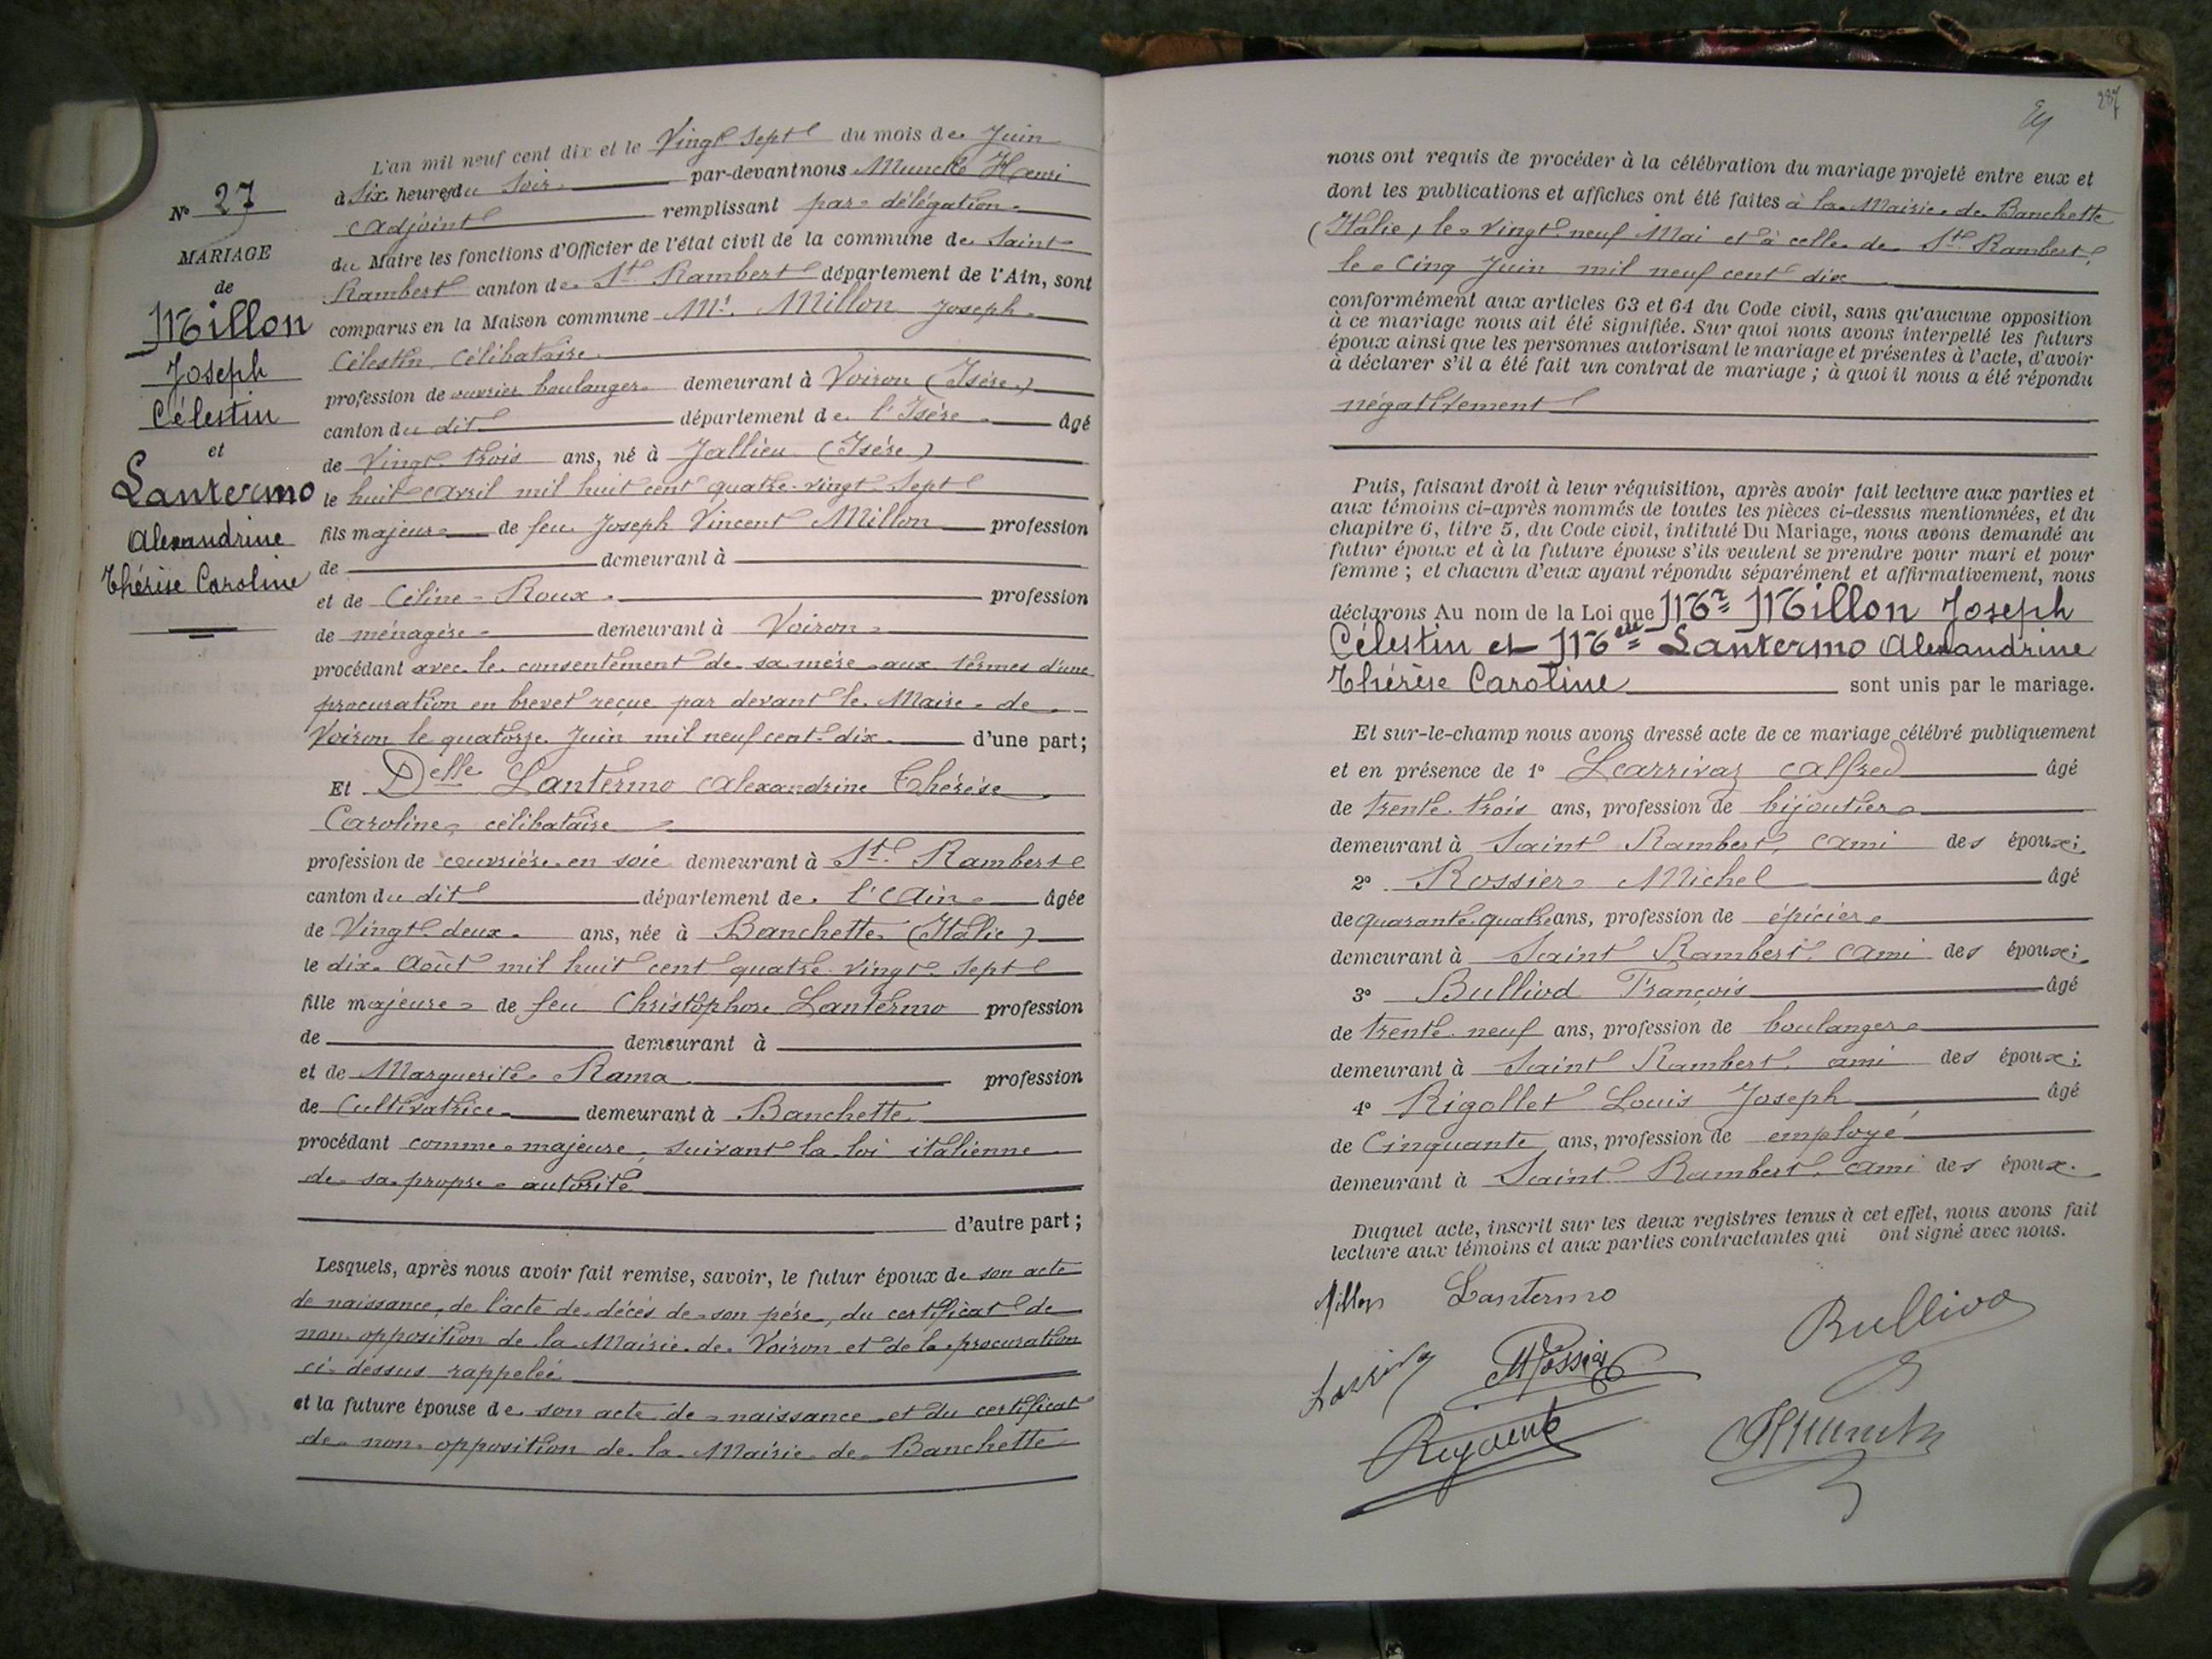 N° 27
MARIAGE
de
Millon
Joseph
Célestin
et
Lantermo
Alexandrine
Thérèse Caroline
L'an mil neuf cent dix et le Vingt Sept du mois de Juin
à Six heures du Soir par-devant nous Munck Henri
adjoint remplissant par délégation
du Maire les fonctions d'Officier de l'état civil de la commune de Saint
Rambert canton de St Rambert département de l'Ain, sont
comparus en la Maison commune Mr. Millon Joseph
Célestin, Célibataire
profession de ouvrier boulanger demeurant à Voiron (Isère)
canton du dit département de l'Isère âgé
de Vingt trois ans, né à Jallieu (Isère)
le huit Avril mil huit cent quatre-vingt Sept
fils majeur de feu Joseph Vincent Millon profession
de demeurant à
et de Céline Roux profession
de ménagère demeurant à Voiron
procédant avec le consentement de sa mère aux termes d'une
procuration en brevet reçue par devant le Maire de
Voiron le quatorze Juin mil neuf cent dix d'une part;
Et Delle Lantermo Alexandrine Thérèse
Caroline, célibataire
profession de ouvrière en soie demeurant à St. Rambert
canton du dit département de l'Ain âgée
de Vingt deux ans, née à Banchette (Italie)
le dix Août mil huit cent quatre vingt Sept
fille majeure de feu Christophore Lantermo profession
de demeurant à
et de Marguerite Rama profession
de Cultivatrice demeurant à Banchette
procédant comme majeure, suivant la loi italienne
de sa propre autorité
d'autre part;
Lesquels, après nous avoir fait remise, savoir, le futur époux de son acte
de naissance, de l'acte de décès de son père, du certificat de
non opposition de la Mairie de Voiron et de la procuration
ci-dessus rappelée
et la future épouse de son acte de naissance et du certificat
de non opposition de la Mairie de Banchette
287
nous ont requis de procéder à la célébration du mariage projeté entre eux et
dont les publications et affiches ont été faites à la Mairie de Banchette
(Italie) le vingt neuf Mai et à celle de St. Rambert
le Cinq Juin mil neuf cent dix
conformément aux articles 63 et 64 du Code civil, sans qu'aucune opposition
à ce mariage nous ait été signifiée. Sur quoi nous avons interpellé les futurs
époux ainsi que les personnes autorisant le mariage et présentes à l'acte, d'avoir
à déclarer s'il a été fait un contrat de mariage; à quoi il nous a été répondu
négativement
Puis, faisant droit à leur réquisition, après avoir fait lecture aux parties et
aux témoins ci-après nommés de toutes les pièces ci-dessus mentionnées, et du
chapitre 6, titre 5, du Code civil, intitulé Du Mariage, nous avons demandé au
futur époux et à la future épouse s'ils veulent se prendre pour mari et pour
femme; et chacun d'eux ayant répondu séparément et affirmativement, nous
déclarons Au nom de la Loi que Mr Millon Joseph
Célestin et Melle Lantermo Alexandrine
Thérèse Caroline sont unis par le mariage.
Et sur-le-champ nous avons dressé acte de ce mariage célébré publiquement
et en présence de 1° Larrivaz Alfred âgé
de trente-trois ans, profession de bijoutier
demeurant à Saint Rambert, ami des époux;
2° Rossier Michel âgé
de quarante quatre ans, profession de épicier
demeurant à Saint Rambert, ami des époux;
3° Bulliod François âgé
de trente neuf ans, profession de boulanger
demeurant à Saint Rambert, ami des époux;
4° Rigollet Louis Joseph âgé
de Cinquante ans, profession de employé
demeurant à Saint Rambert, ami des époux.
Duquel acte, inscrit sur les deux registres tenus à cet effet, nous avons fait
lecture aux témoins et aux parties contractantes qui ont signé avec nous.
Millon Lantermo
Bulliod
Larrivaz MRossier
HMunck